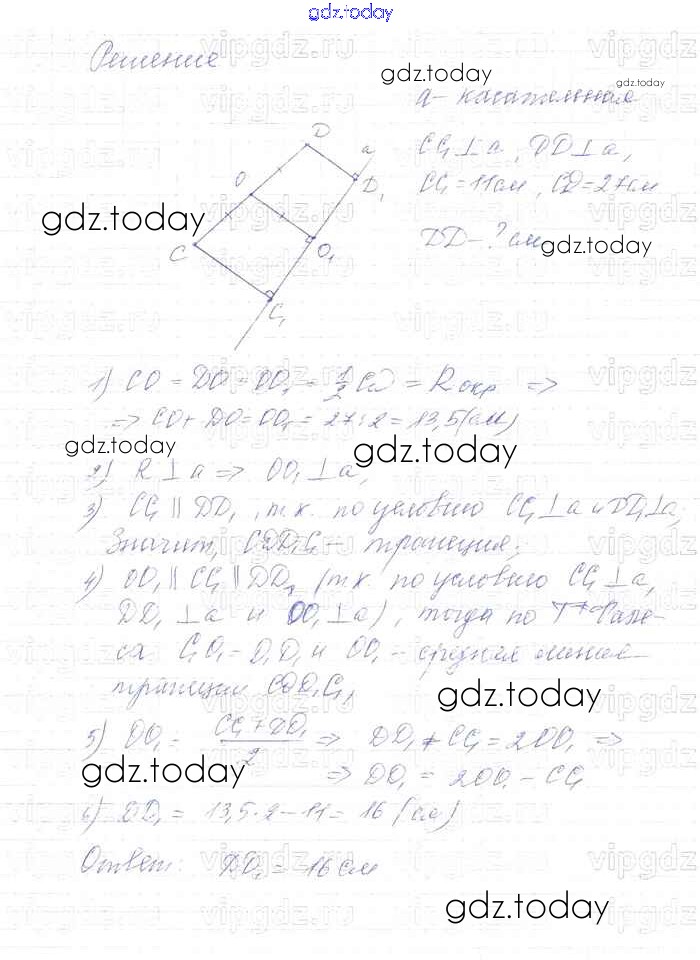 gdz.today
Решение
gdz.today
gdz.today
a - касательная
D
a
CC₁ ⊥ a, DD ⊥ a,
O
D₁
CC₁ = 11 см, CD = 27 см
gdz.today
DD - ? см
gdz.today
C
O₁
C₁
1) CO = DO = OO₁ = 1/2 CD = R окр ⇒
⇒ CO + DO = OO₁ = 27 : 2 = 13,5 (см)
gdz.today
gdz.today
2) R ⊥ a ⇒ OO₁ ⊥ a,
3) CC₁ || DD₁, т.к. по условию CC₁ ⊥ a и DD₁ ⊥ a,
Значит, CDD₁C₁ - трапеция;
4) OO₁ || CC₁ || DD₁ (т.к. по условию CC₁ ⊥ a,
DD₁ ⊥ a и OO₁ ⊥ a), тогда по Т Фале-
са C₁O₁ = O₁D₁ и OO₁ - средняя линия
трапеции CDD₁C₁,
gdz.today
5) OO₁ = (CC₁ + DD₁)/2 ⇒ DD₁ + CC₁ = 2OO₁ ⇒
gdz.today
⇒ DD₁ = 2OO₁ - CC₁
6) DD₁ = 13,5 · 2 - 11 = 16 (см)
Ответ: DD₁ = 16 см
gdz.today
vipgdz.ru